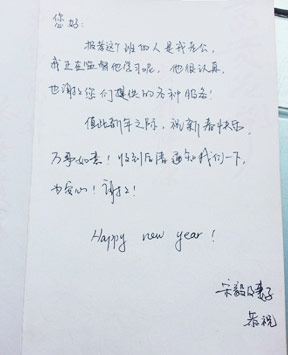 您好:
报着这个班的人是我老公,
我正在监督他学习呢,他很认真,
也谢谢您们提供的各种服务!
值此新年之际,祝新春快乐,
万事如意!收到后请通知我们一下,
为安心!谢谢!
Happy new year!
宋毅及妻子
恭祝